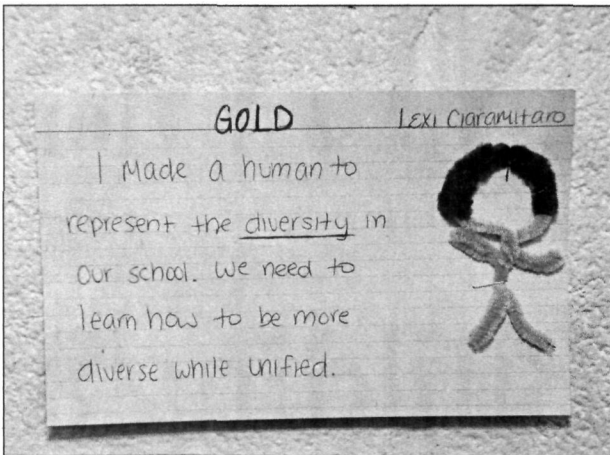 GOLD Lexi Ciaramitaro
I Made a human to
represent the diversity in
our school. We need to
learn how to be more
diverse while unified.